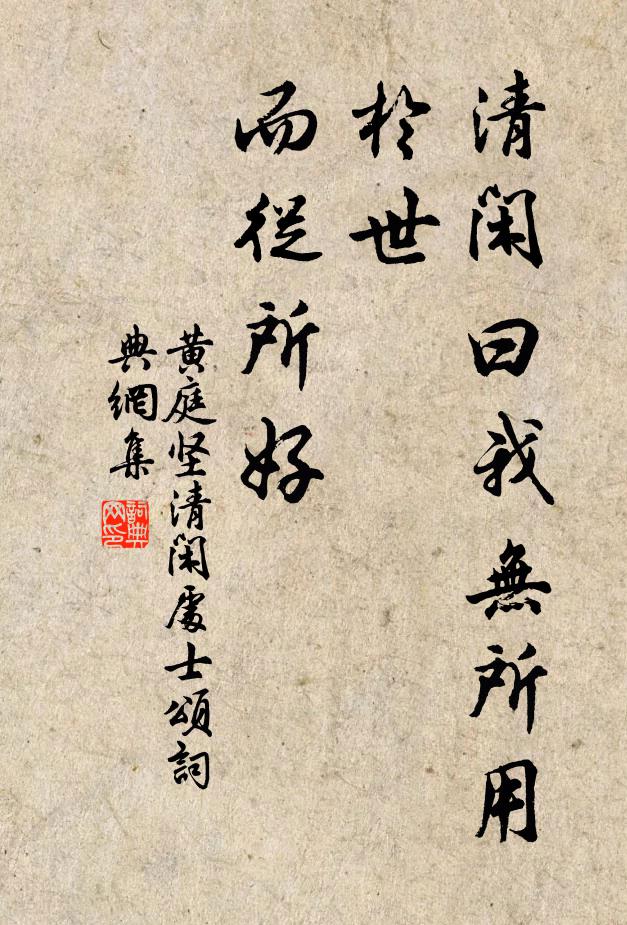 清閑曰我無所用
於世
而從所好
黄庭坚清閑處士頌詞
典網集
詞典
网印